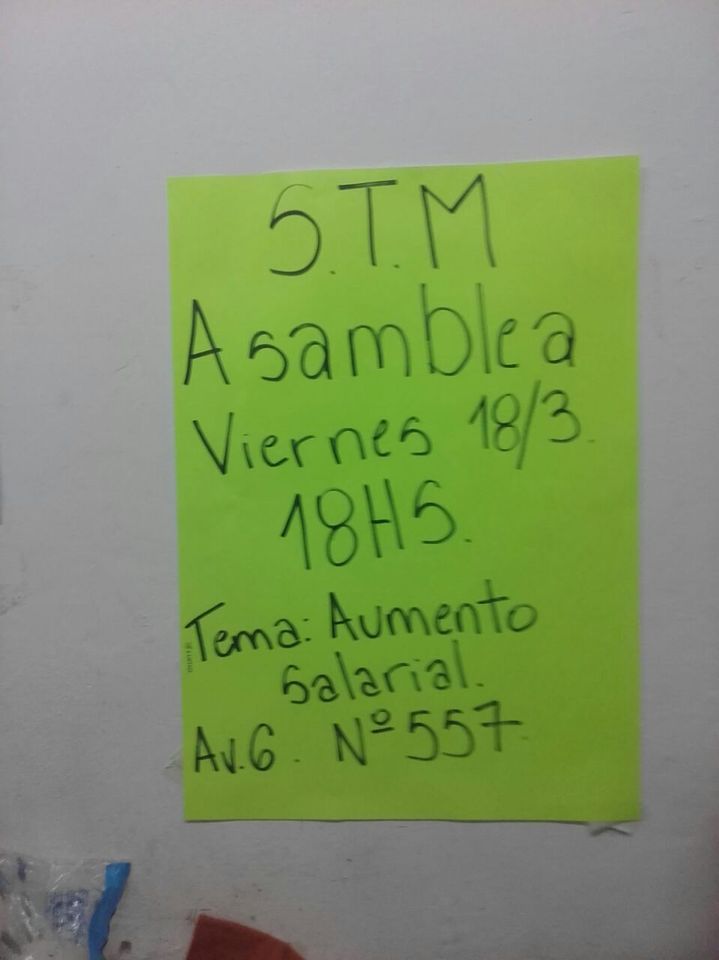 S.T.M
Asamblea
Viernes 18/3.
18HS.
Tema: Aumento
Salarial.
Av. 6. Nº 557.